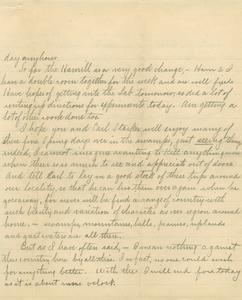 day anyhow.
So far the Harrill is a very good change,- Hann & I
have a double room together for the week and are well fixed.
Have hopes of getting into the Lab tomorrow, so did a lot of
writing up directions for experiments today. Am getting a
lot of other work done too.
I hope you and Carl Starker will enjoy many of
these fine Spring days over in the mountains, just seeing things
indeed, I cannot ever see wanting to
when there was
And tell Carl to lay on a good stock of these trips around
our locality, so that he can live them over again when he
goes away, for never will he find a range of country with
such beauty and variation of character as our region around
home, - swamps, mountains, hills, prairies, uplands
and past waters are all there.
But as I have often said - I mean nothing against
this country here by all this. In fact, no one could wish
for anything better. With this I will end for today
as it is about now o'clock.